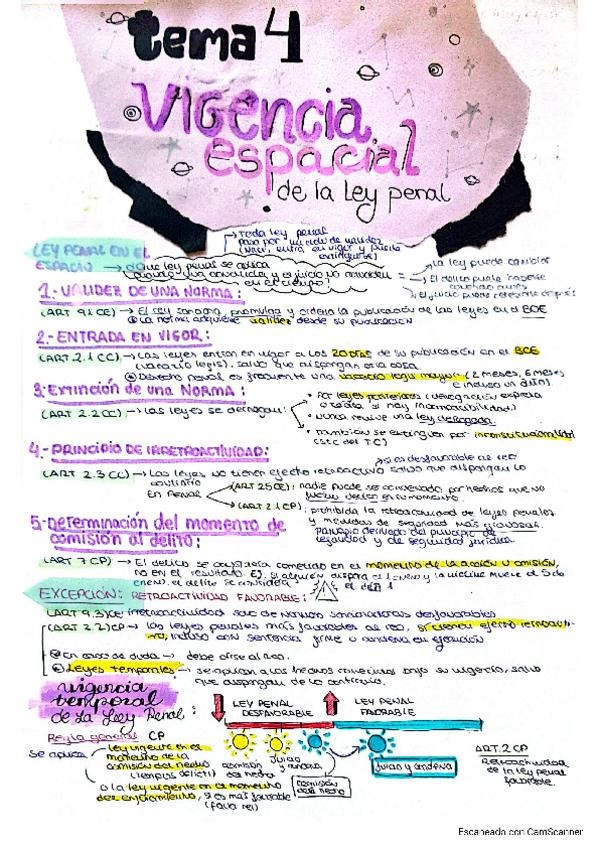 tema 4
Vigencia
espacial
de la Ley penal
→ toda ley penal
pasa por un ciclo de validez
(Nace, entra en vigor y puede
extinguirse)
LEY PENAL EN EL
ESPACIO → ¿Qué ley penal se aplica
cuando y el juicio no coinciden
en el tiempo?
→ La ley puede cambiar
→ El delito puede haberse
→ El juicio puede celebrarse después
1.- VALIDEZ DE UNA NORMA:
(ART 91 CE) → El rey sanciona, promulga y ordena la publicación de las leyes en el BOE
La norma adquiere validez desde su publicación
2.- ENTRADA EN VIGOR:
(ART. 2.1 CC) → Las leyes entran en vigor a los 20 días de su publicación en el BOE
(vacatio legis), salvo que dispongan otra cosa.
Derecho penal es frecuente una vacatio legis mayor (2 meses, 6 meses
e incluso un año)
3. Extinción de una NORMA:
(ART 2.2 CC) → Las leyes se derogan:
• Por leyes posteriores (derogación expresa
o tácita si hay incompatibilidad)
• Nunca revive una ley derogada
• También se extinguen por inconstitucionalidad
(STC del T.C)
4.- PRINCIPIO DE IRRETROACTIVIDAD:
→ si es desfavorable al reo
(ART 2.3 CC) → Las leyes no tienen efecto retroactivo salvo que dispongan lo
contrario
EN PENAL
(ART 25 CE): nadie puede ser condenado por hechos que no
fueran delito en su momento.
(ART 2.1 CP): prohibida la retroactividad de leyes penales
y medidas de seguridad más gravosas.
Principio derivado del principio de
legalidad y de seguridad jurídica.
5.- Determinación del momento de
comisión al delito:
(ART 7 CP) → El delito se considera cometido en el momento de la acción u omisión,
no en el resultado. Ej. si alguien dispara el 1 enero y la víctima muere el 5 de
enero, el delito se considera el día 1
EXCEPCIÓN: RETROACTIVIDAD FAVORABLE:
(ART 9.3) CE irretroactividad solo de normas sancionadoras desfavorables
(ART 2.2) CP → las leyes penales más favorables al reo, sí tienen efecto retroacti-
vo, incluso con sentencia firme o condena en ejecución
En caso de duda → debe oírse al reo.
Leyes temporales → se aplican a los hechos cometidos bajo su vigencia, salvo
que dispongan de lo contrario.
vigencia
temporal
de la Ley Penal:
LEY PENAL
DESFAVORABLE
LEY PENAL
FAVORABLE
Regla general CP
se aplica
Ley vigente en el
momento de la
comisión del hecho
(tempus delicti)
o la ley vigente en el momento
del enjuiciamiento, si es más favorable
(favor rei)
comisión
del hecho
Juicio
y condena
comisión
del hecho
Juicio y condena
ART. 2 CP
Retroactividad
de la ley penal
favorable.
Escaneado con CamScanner